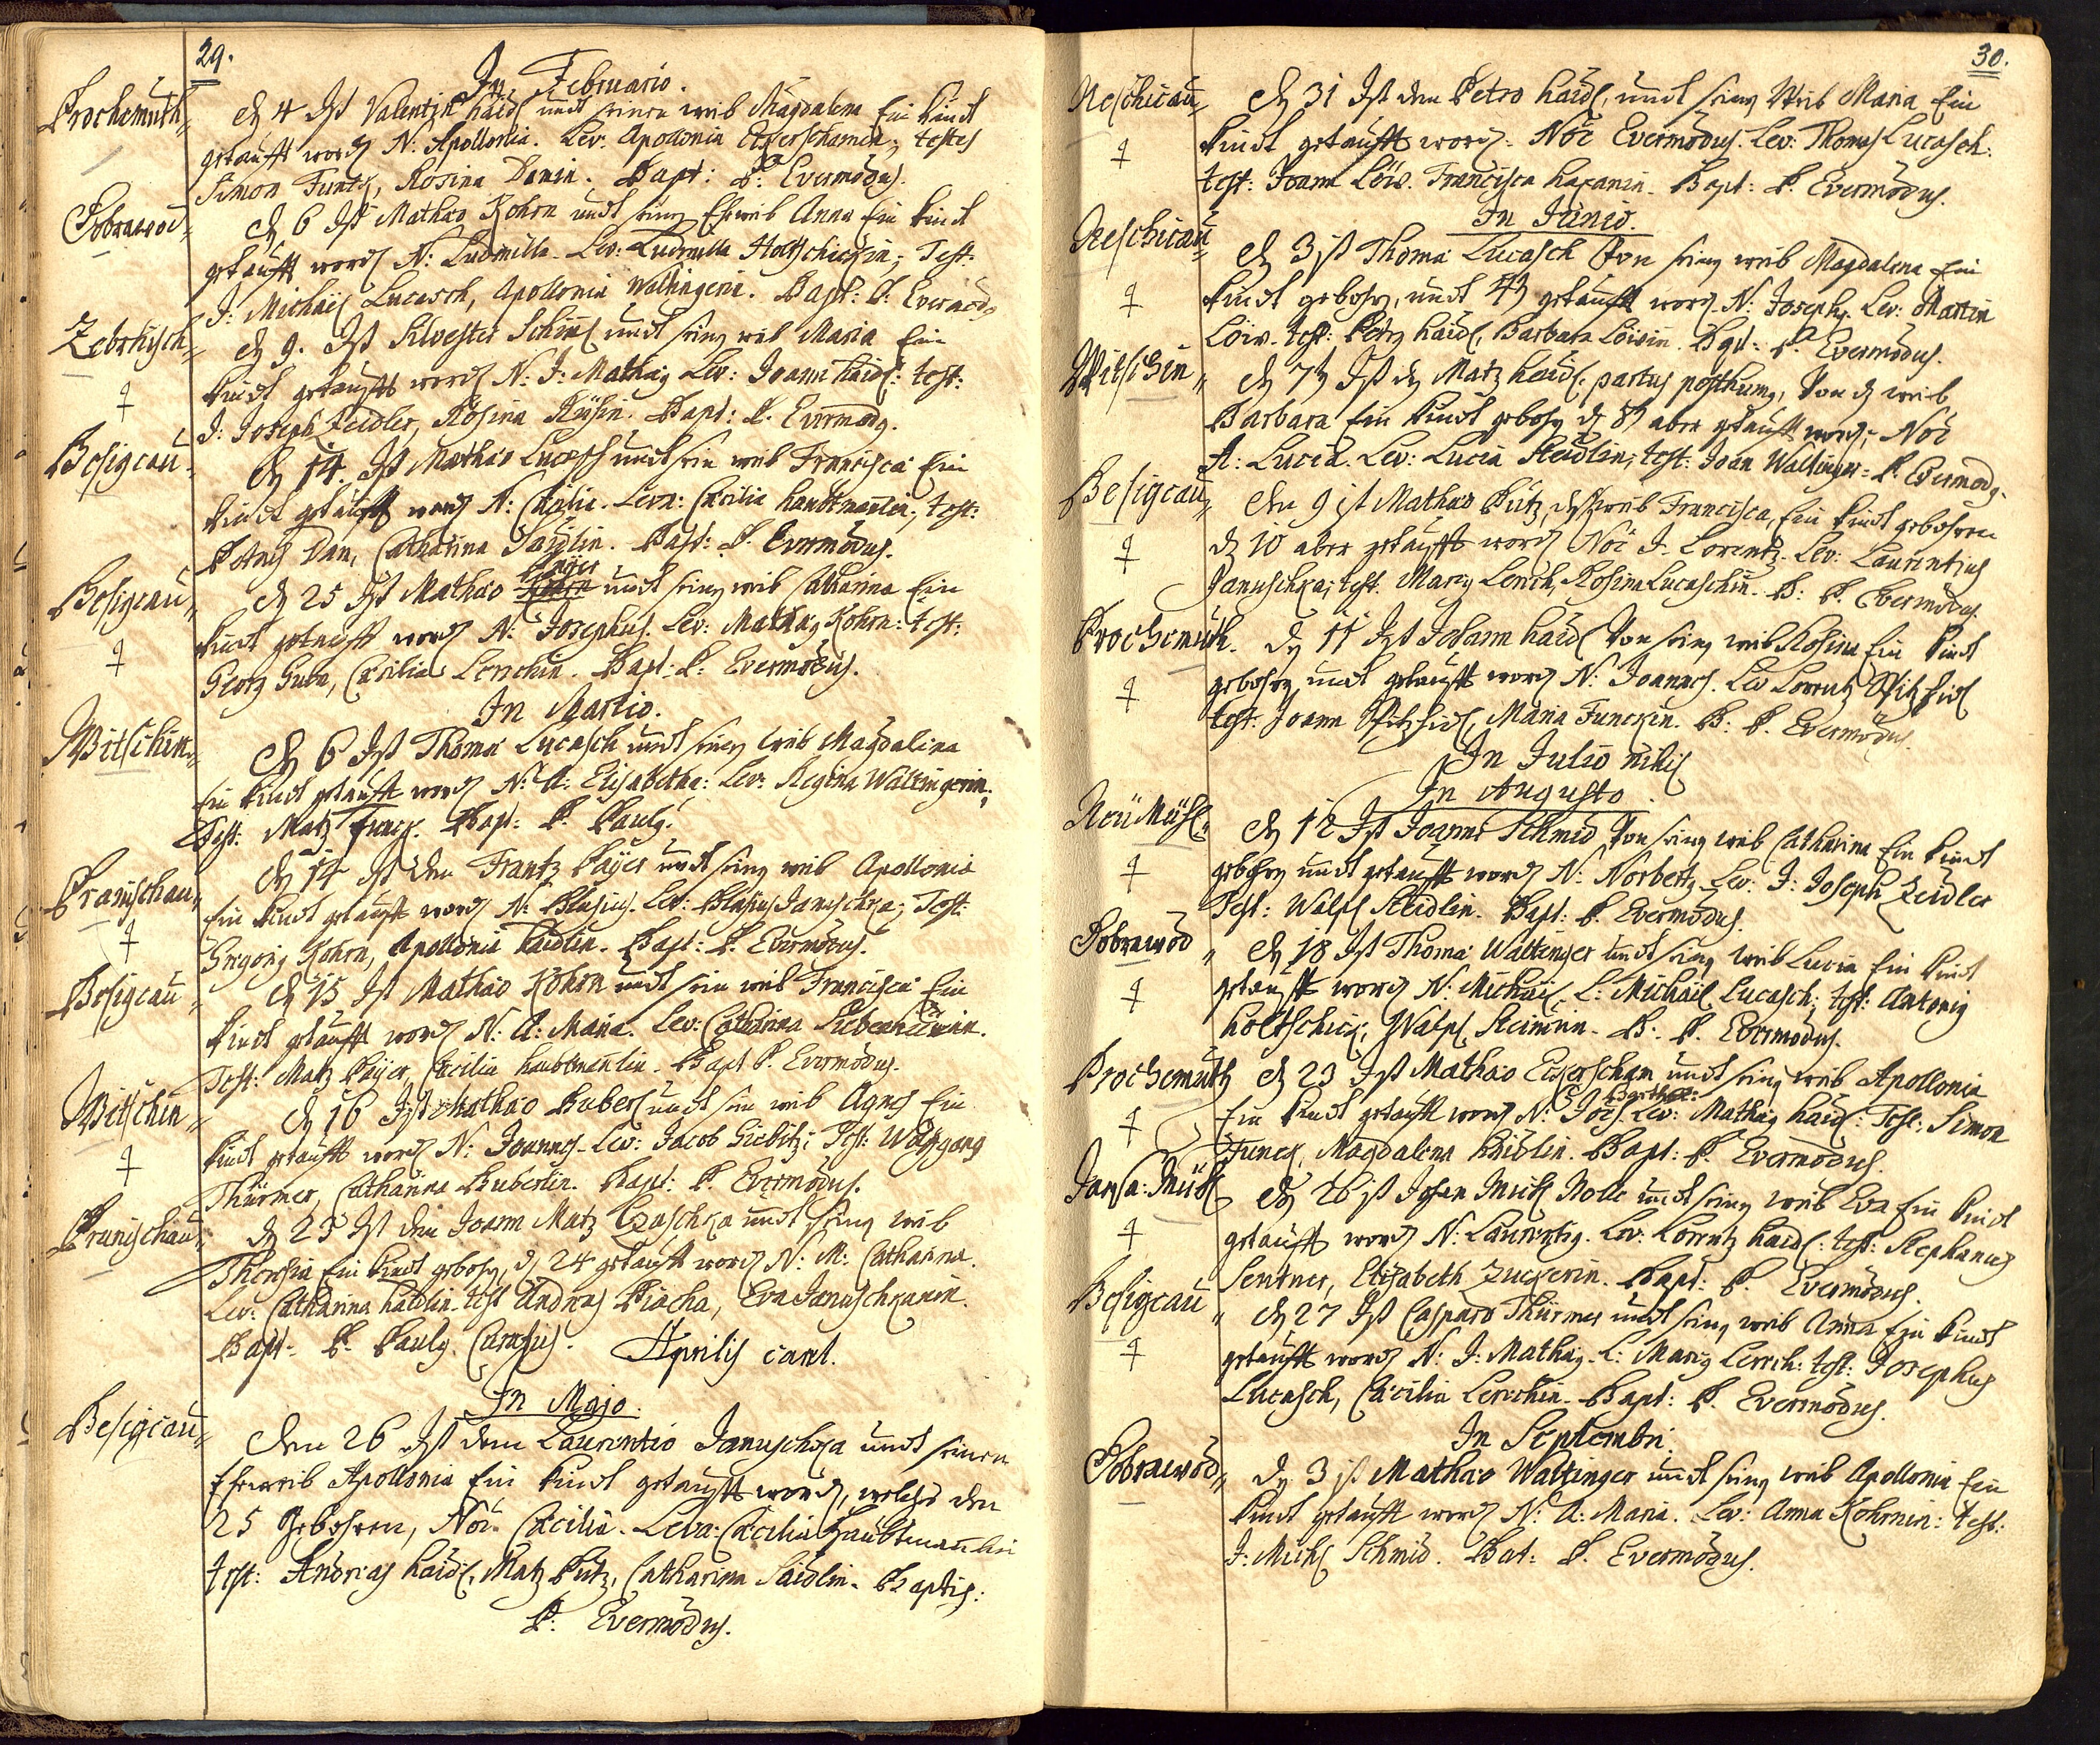 29.
In Februario.
Prochamuth d 4 Ist Valentin Haidl undt seinen weib Magdalena Ein kindt
getaufft word N: Apollonia. Lev: Apollonia Eckerschamin; testes
Simon Funck, Rosina Danin. Bapt: P: Evermodus.
Dobrawod d 6 Ist Mathæo Kohrn undt seing Eheweib Anna Ein kindt
getaufft word N: Ludmilla. Lev: Ludmilla Holtschickin; Test:
J: Michael Lucasch, Apollonia Waltingerin. Bapt: P: Evermod
Zebrhisch d 9. Ist Silvester Schiml undt seing weib Maria Ein
kindt getaufft word N: J: Mathæg Lev: Joann Haidl: test:
J: Joseph Zeidler, Rosina. Bapt: P. Evermodg.
Besigcau d 14. Ist Mathæo Lucasch undt sein weib Francisca Ein
kindt getaufft word N: Cæcilia. Leva: Cæcilia Haubtmanlin; test:
Petrus Dan, Catharina Saidlin. Bapt: P. Evermodus.
Besigcau d 25 Ist Mathæo Payer undt seing weib Catharina Ein
kindt getaufft word N: Josephus. Lev: Mathæg Kohrn: test:
Georg, Cæcilia Lerchin. Bapt. P: Evermodus.
In Martio.
Witschin d 6 Ist Thomæ Lucasch undt seing weib Magdalena
Ein kindt getaufft word N: A: Elisabetha: Lev: Regina Waltingerin;
Test: Matz Funck. Bapt: P. Paulg.
Pranischau d 14 Ist den Frantz Payer undt seing weib Apollonia
Ein kindt getaufft word N: Blasius. Lev: Blasius Januschka; Test:
Gregorig Kohrn, Apollonia Haidlin. Bapt: P. Evermodus.
Besigcau d 15 Ist Mathæo Kohrn undt sein weib Francisca Ein
kindt getaufft word N: A: Maria. Lev: Catharina
Test: Matz Payer, Cæcilia Haubtmanlin. Bapt P. Evermodus.
Witschin d 16 Ist Mathæo Huberl undt sein weib Agnes Ein
kindt getaufft word N: Joannes. Lev: Jacob Siebitz; Test: Wolffgang
Thürmer, Catharina Huberlin. Bapt: P. Evermodus.
Pranischau d 23 Ist den Joann Matz undt seing weib
Theresia Ein kindt gebohrg, d 24 getaufft word N: M: Catharina.
Lev: Catharina Haidlin. test Andreas, Eva Januschkanin.
Bapt. P. Paulg. Aprilis caret.
In Majo.
Besigcau Den 26 Ist dem Laurentio Januschka undt seinen
Eheweib Apollonia Ein kindt getaufft word, welches den
25 Gebohren, Noe. Cæcilia. Leva: Cæcilia Haubtmanlin
test: Andreas Haidl, Matz Putz, Catharina Saidlin. Baptis:
P: Evermodus.
30.
Neschicau d 31 Ist den Petro Haidl, undt seing Weib Maria Ein
kindt getaufft word. Noe Evermodus. Lev: Thomas Lucasch:
test: Joann Löw. Francisca. Bapt: P. Evermodus.
In Junio.
Neschicau d 3 ist Thomæ Lucasch Von seing weib Magdalena Ein
kindt gebohrg, undt 4t getaufft word. N: Josephg. Lev: Martin
Löw. test: Petrg Haidl, Barbara Löwin. Bapt: P. Evermodus.
Witschin d 7t Ist dg Matz Haidl partus posthumg, Von d weib
Barbara Ein kindt gebohrg d 8t aber getaufft word; Noe
A: Lucia. Lev: Lucia Steidlin; test: Joan Waltinger. P. Evermodg.
Besigcau Den 9 ist Mathæo Putz, d weib Francisca, Ein kindt gebohren
d 10 aber getaufft word Noe J. Lorentz. Lev: Laurentius
Januschka; test. Marig Lerch, Rosina Lucaschin. B: P. Evermodus.
Prochemuth. d 11 Ist Johann Haidl Von seing weib Rosina Ein kindt
gebohrg, undt getaufft word N: Joannes. Lev Lorentz Spitzhirl
test: Joann Spitzhirl, Maria Funckin. B: P. Evermodus
In Julio nihil
In Augusto.
Neü Mühl d 12 Ist Joanne Schmid Von seing weib Catharina Ein kindt
gebohrg undt getaufft word N: Norbertg. Lev: J: Joseph Zeidler
Test: Walpl Steidlin. Bapt: P. Evermodus.
Dobrawod d 18 Ist Thomæ Waltinger undt seing weib Lucia Ein kindt
getaufft word N: Michael, L: Michael Lucasch; test: Antonig
Holtschick, Walpl. B: P. Evermodus.
Prochemuth d 23 Ist Mathæo Eckerscham undt seing weib Apollonia
Ein kindt getaufft word N: Joes Barthol: Lev: Mathæg Haidl: Test: Simon
Funck, Magdalena Haidlin. Bapt: P. Evermodus.
Jansa: Mühl d 26 ist Johan Michl Nolle undt seing weib Eva Ein kindt
getaufft word N: Laurentig. Lev: Lorentz Haidl: test: Stephanus
Sentner, Elisabeth Zuckerin. Bapt: P. Evermodus.
Besigcau d 27 Ist Casparo Thürmer undt seing weib Anna Ein kindt
getaufft word N: J: Mathæg. L: Marig Lerch: test: Josephus
Lucasch, Cæcilia Lerchin. Bapt: P. Evermodus.
In Septembri.
Dobrawod d 3 ist Mathæo Waltinger undt seing weib Apollonia Ein
kindt getaufft word N: A: Maria. Lev: Anna Kohrnin: test:
J: Michl Schmid. Bat: P. Evermodus.